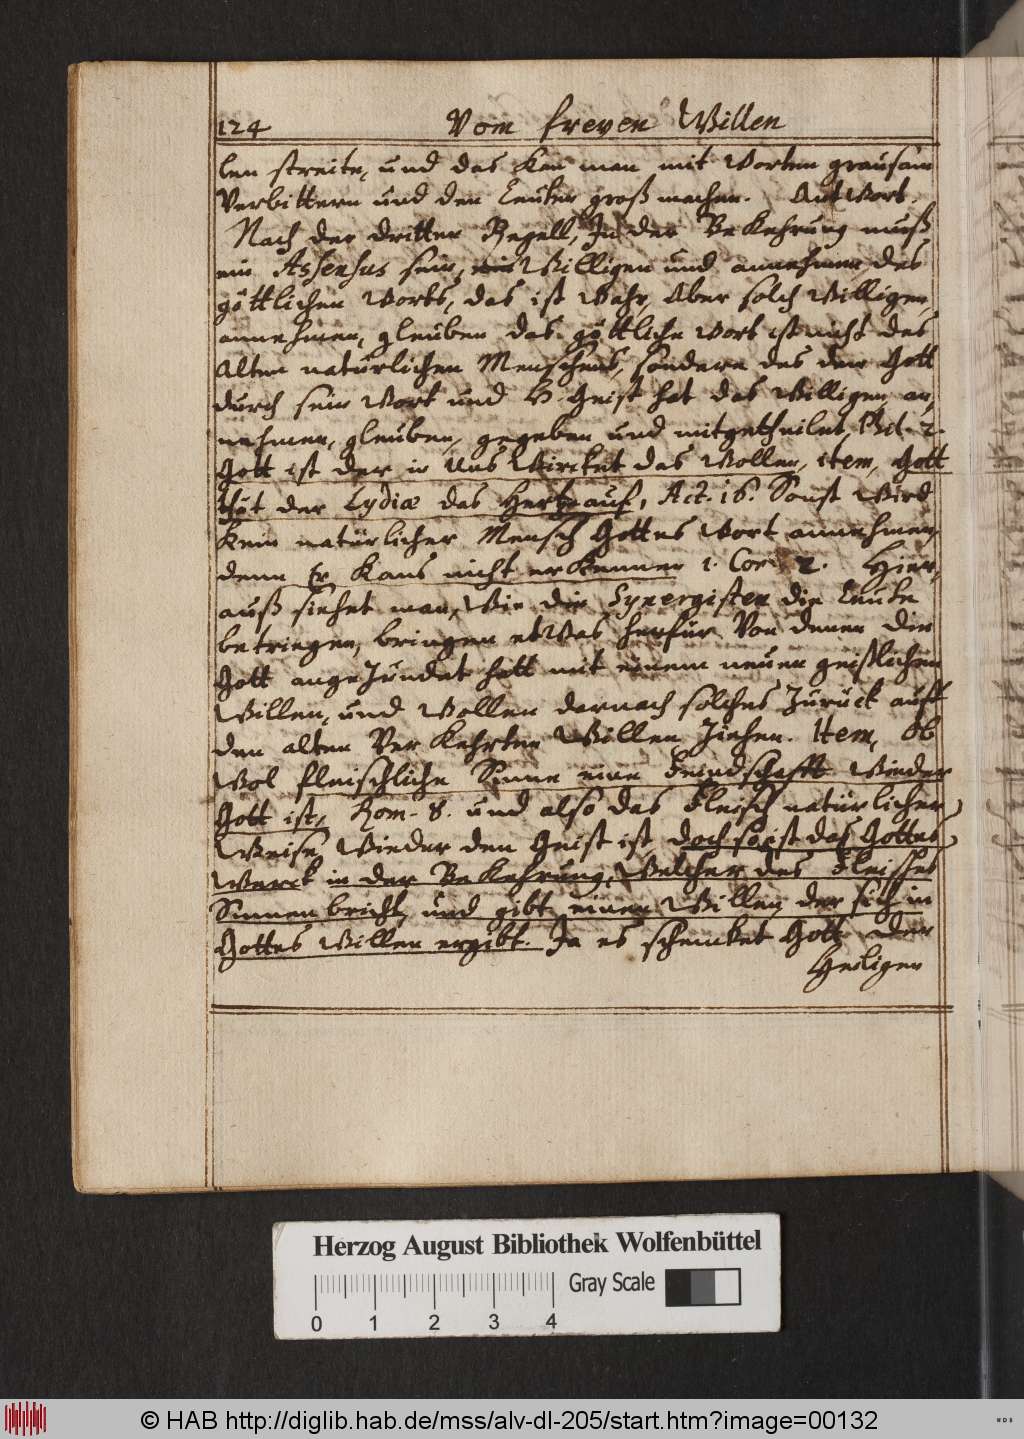 124 Vom freyen Willen
len streite, und das kan man mit worten grausam
verbittern und den Leuten groß machen. Antwort.
Nach der dritten Regell, In der Bekehrung muß
ein Assensus sein, Willigen und annehmen des
göttlichen Worts, das ist wahr, Aber solch willigen,
annehmen, gleuben das göttliche Wort ist nicht des
Alten natürlichen Menschens, sondern des den Gott
durch sein Wort und H. Geist hat das willigen an,
nehmen, gleuben, gegeben und mitgetheilet, Phil. 2.
Gott ist der in Uns Wircket das Wollen, item, Gott
thut der Lydiæ das Hertz auf, Act. 16. Sonst wird
kein natürlicher Mensch Gottes Wort annehmen
denn Er kans nicht erkennen 1. Cor. 2. Hier,
auß siehet man, Wie die Synergisten die Leute
betriegen, bringen etwas herfür von denen die
Gott angezündet hatt mit einem neuen geistlichen
Willen, und wollen darnach solches zurück auff
den alten verkehrten Willen ziehen. Item, Ob
wol fleischliche Sinne eine Feindschafft wieder
Gott ist, Rom. 8. und also das Fleisch natürlicher
Weise wieder den Geist ist, doch so ist das Gottes
Werck in der Bekehrung, Welcher des Fleisches
Sinnen bricht, und gibt einen Willen, der sich in
Gottes Willen ergibt. Ja es schencket Gott der
Heiligen
Herzog August Bibliothek Wolfenbüttel
Gray Scale
0 1 2 3 4
© HAB http://diglib.hab.de/mss/alv-dl-205/start.htm?image=00132